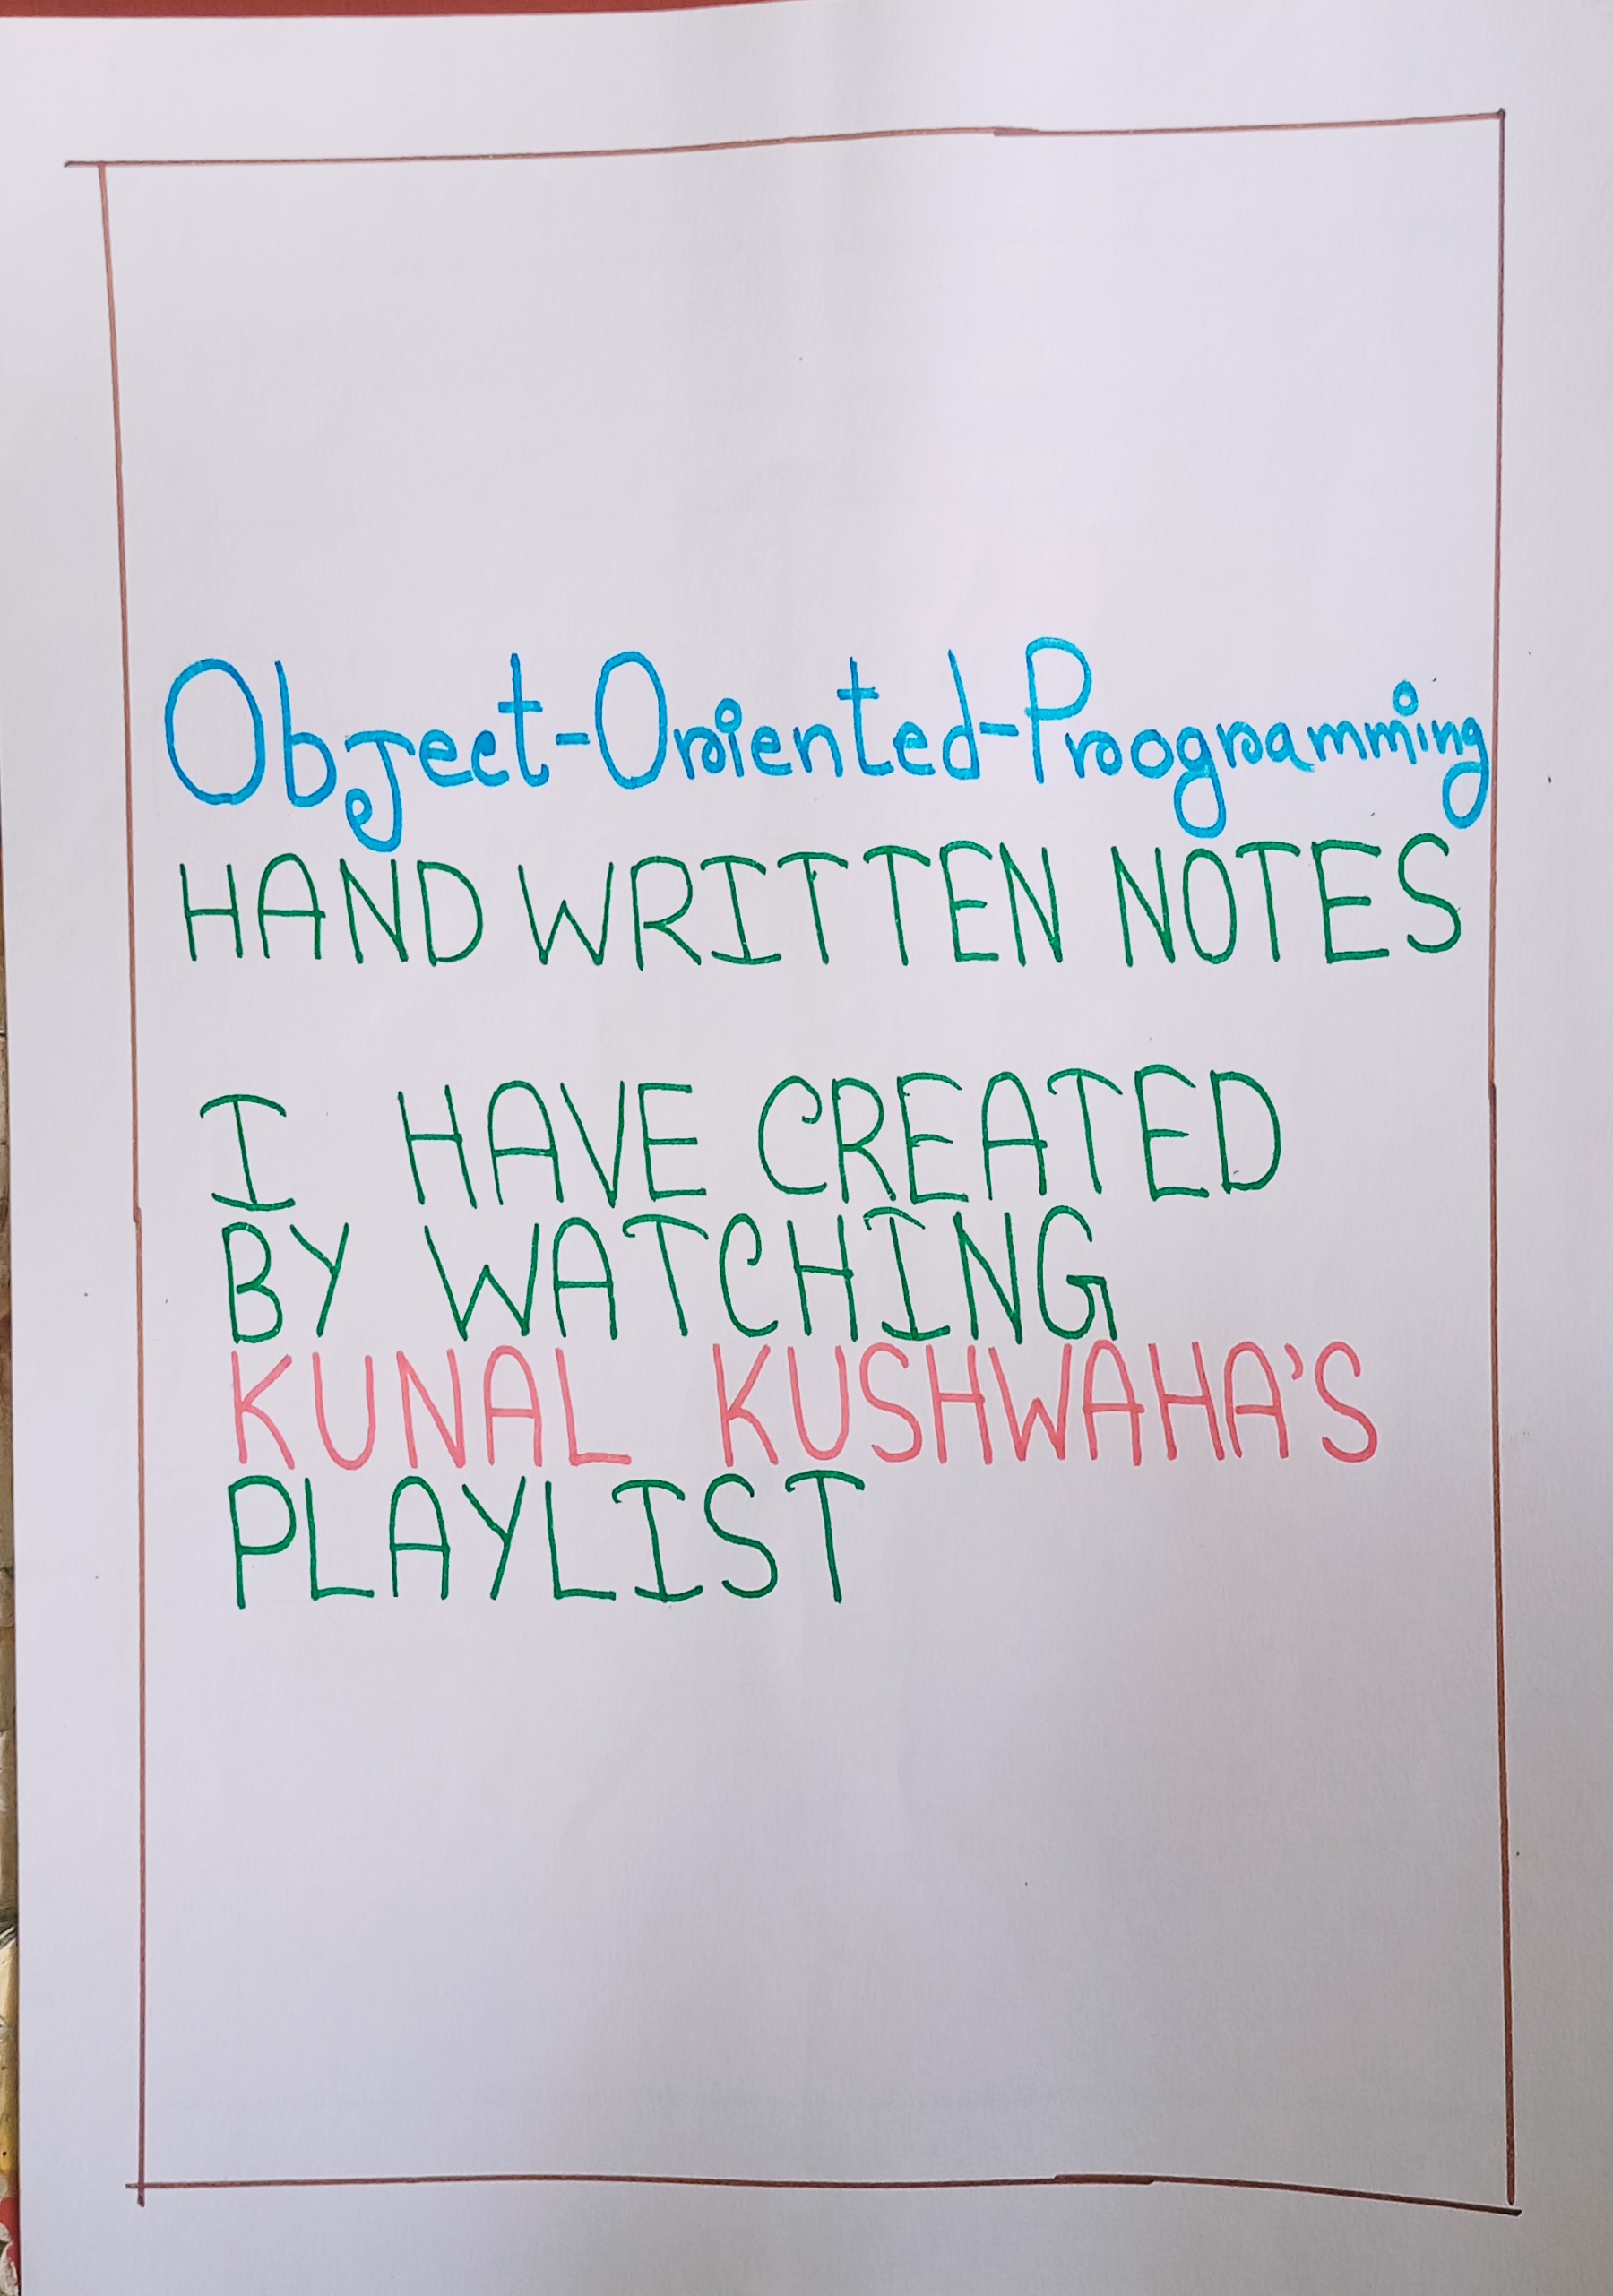 Object-Oriented-Programming
HAND WRITTEN NOTES
I HAVE CREATED
BY WATCHING
KUNAL KUSHWAHA'S
PLAYLIST